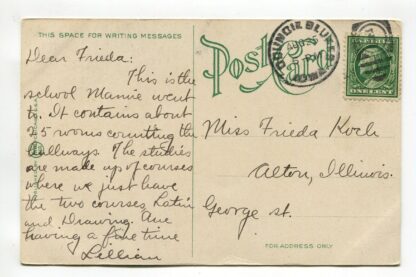 THIS SPACE FOR WRITING MESSAGES
Post Card
COUNCIL BLUFFS
IOWA
ONE CENT
Dear Frieda:
This is the
school Mamie went
to. It contains about
25 rooms counting the
hallways. The studies
are made up of courses
where we just have
the two courses Latin
and Drawing. Are
having a fine time
Lillian
Miss Frieda Koch
Alton, Illinois.
George St.
FOR ADDRESS ONLY